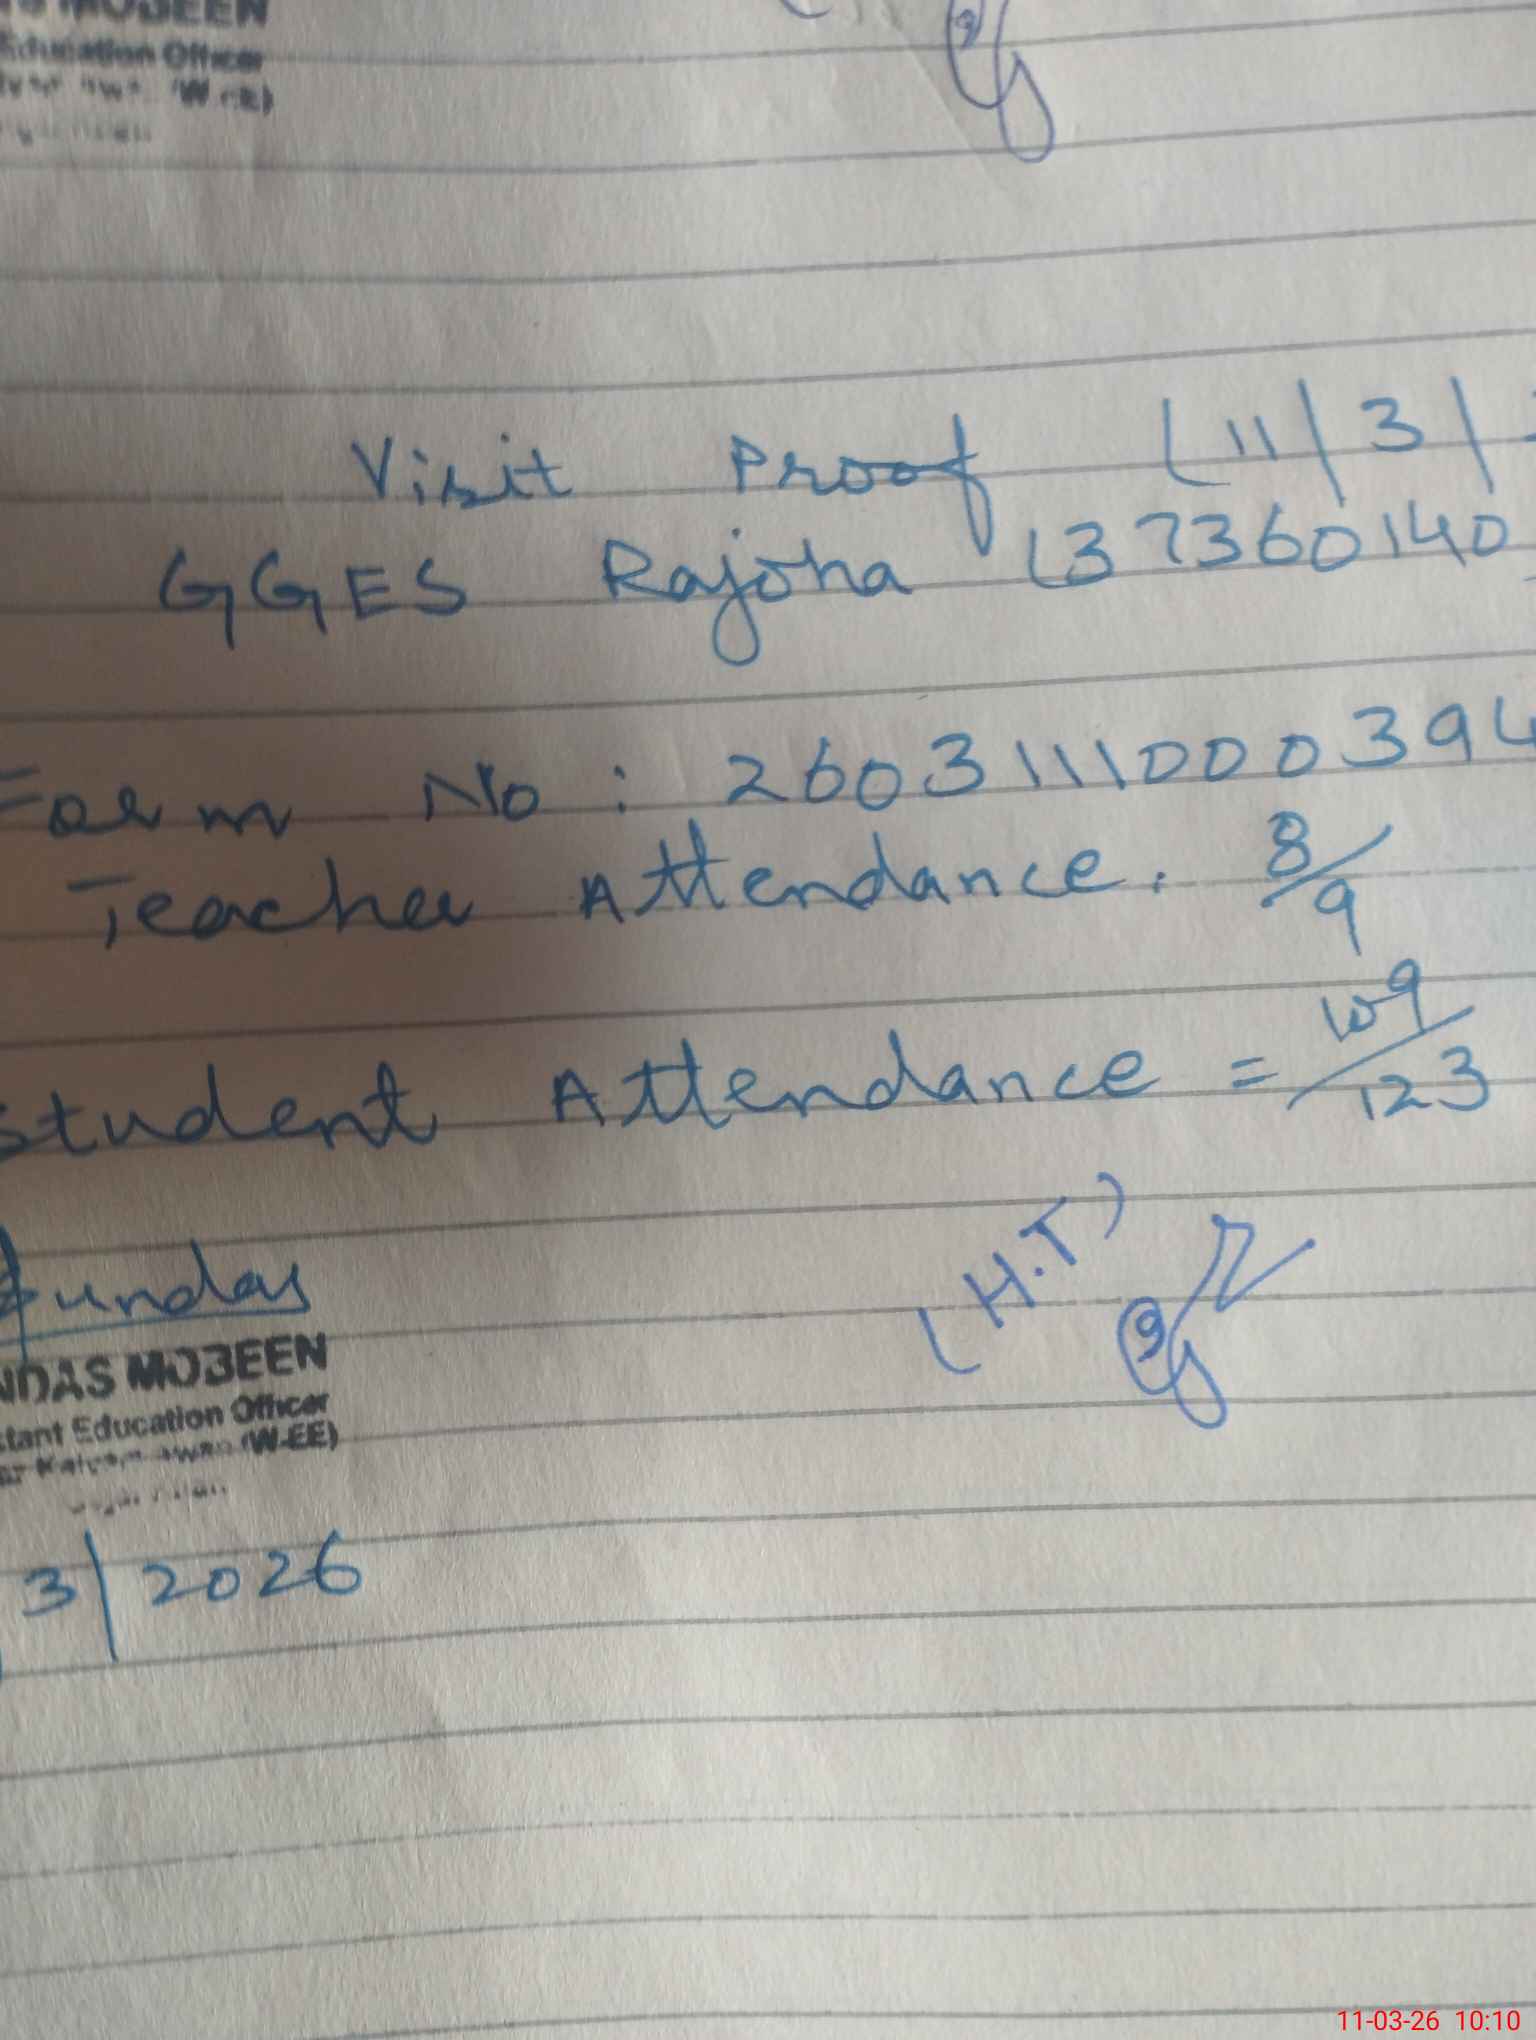 MOBEEN
Education Officer
Visit Proof (11/3/
GGES Rajoha (37360140
Form No: 2603111000394
Teacher Attendance. 8/9
Student Attendance = 109/123
(H.T)
Fundas
NDAS MOBEEN
stant Education Officer
(W-EE)
3/2026
11-03-26 10:10